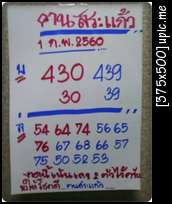 คนสระแก้ว
1 ก.พ.2560
บ 430 439
30 39
ล 54 64 74 56 65
76 67 68 66 57
75 50 52 53
[375x500] upic.me